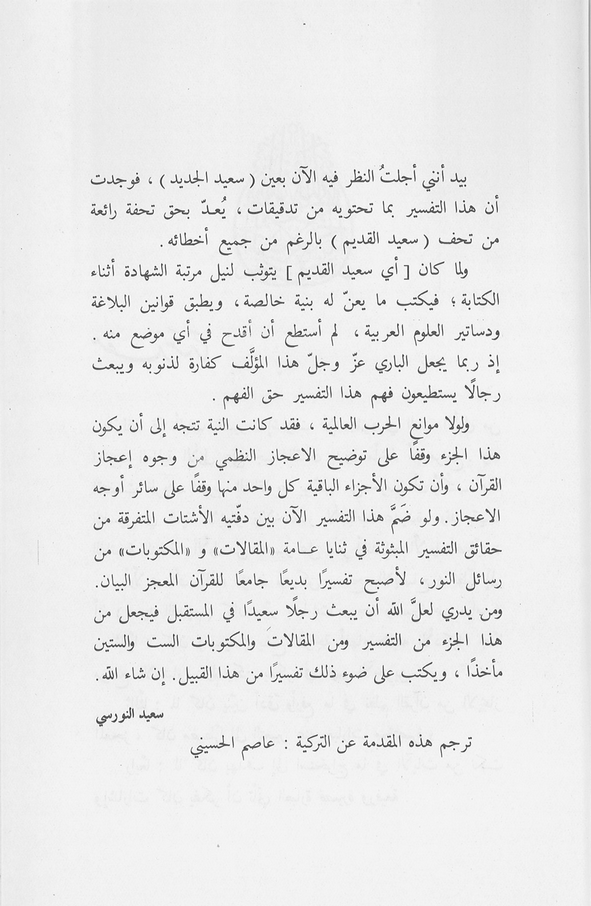 بيد أنني أجلتُ النظر فيه الآن بعين ( سعيد الجديد ) ، فوجدت
أن هذا التفسير بما تحتويه من تدقيقات ، يُعدّ بحق تحفة رائعة
من تحف ( سعيد القديم ) بالرغم من جميع أخطائه .
ولما كان [ أي سعيد القديم ] يتوثب لنيل مرتبة الشهادة أثناء
الكتابة ؛ فيكتب ما يعنّ له بنية خالصة ، ويطبق قوانين البلاغة
ودساتير العلوم العربية ، لم أستطع أن أقدح في أي موضع منه .
إذ ربما يجعل الباري عزّ وجلّ هذا المؤلَّف كفارة لذنوبه ويبعث
رجالًا يستطيعون فهم هذا التفسير حق الفهم .
ولولا موانع الحرب العالمية ، فقد كانت النية تتجه إلى أن يكون
هذا الجزء وقفًا على توضيح الاعجاز النظمي من وجوه إعجاز
القرآن ، وأن تكون الأجزاء الباقية كل واحد منها وقفًا على سائر أوجه
الاعجاز. ولو ضَمَّ هذا التفسير الآن بين دفّتيه الأشتات المتفرقة من
حقائق التفسير المبثوثة في ثنايا عامة «المقالات» و «المكتوبات» من
رسائل النور ، لأصبح تفسيرًا بديعًا جامعًا للقرآن المعجز البيان.
ومن يدري لعلَّ الله أن يبعث رجلًا سعيدًا في المستقبل فيجعل من
هذا الجزء من التفسير ومن المقالات والمكتوبات الست والستين
مأخذًا ، ويكتب على ضوء ذلك تفسيرًا من هذا القبيل. إن شاء الله.
سعيد النورسي
ترجم هذه المقدمة عن التركية : عاصم الحسيني